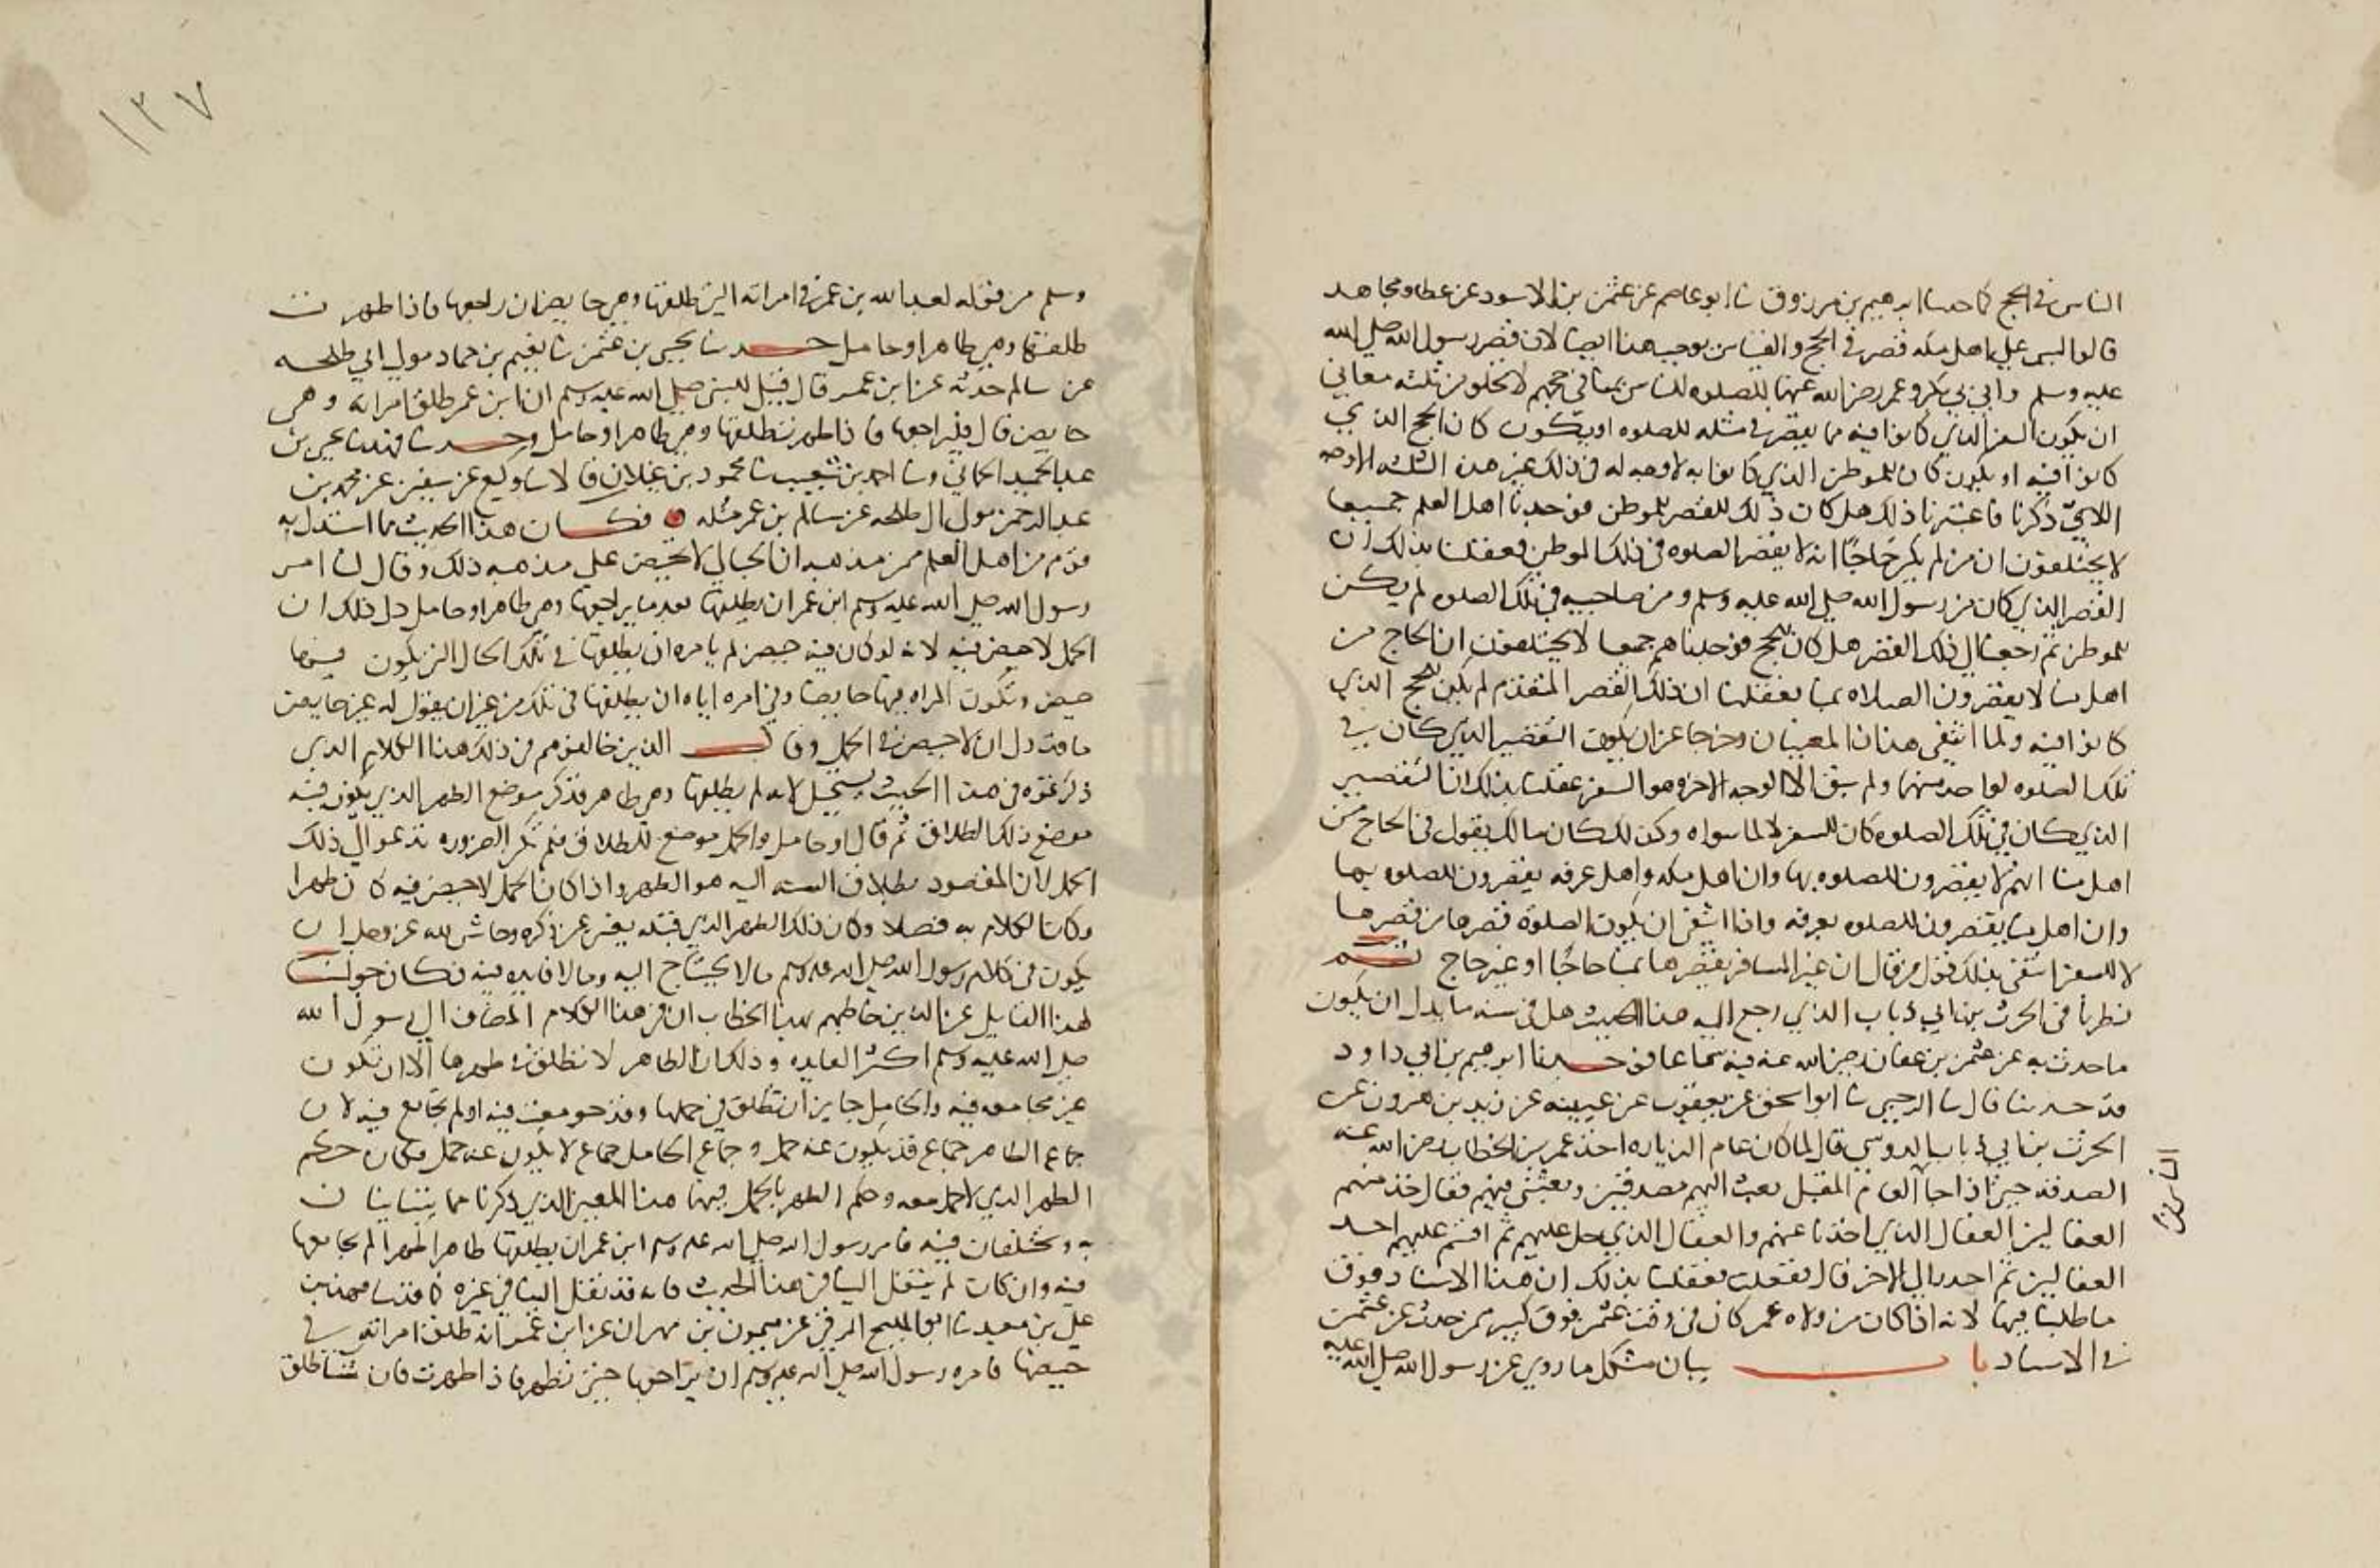 الناس في الحج كما حدثنا ابرهيم بن مرزوق ثنا ابو عاصم عن عثمن بن الاسود عن عطا ومجاهد
قالوا ليس على اهل مكه قصر في الحج والقياس يوجب هذا ايضا لان قصر رسول الله صلى الله
عليه وسلم وابي بكر وعمر رضي الله عنهما للصلوه للناس بمنا في حجهم لا يخلو من ثلثه معاني
ان يكون السفر الذي كانوا فيه مما يقصر في مثله للصلوه او يكون كان الحج الذي
كانوا فيه او يكون كان للموطن الذي كانوا به لا وجه له في ذلك غير هذه الثلثه الاوجه
اللاتي ذكرنا فاعتبرنا ذلك هل كان ذلك للقصر للموطن فوجدنا اهل العلم جميعا
لا يختلفون ان من لم يكن حاجا انه لا يقصر الصلوه في ذلك الموطن فعقلنا بذلك ان
القصر الذي كان من رسول الله صلى الله عليه وسلم ومن صاحبيه في تلك الصلوه لم يكن
للموطن ثم رجعنا الى ذلك القصر هل كان للحج فوجدناهم جميعا لا يختلفون ان الحاج من
اهل منا لا يقصرون الصلاه بمنا فعقلنا ان ذلك القصر المتقدم لم يكن للحج الذي
كانوا فيه ولما انتفى هذان المعنيان وخرجا عن ان يكون التقصير الذي كان في
تلك الصلوه لواحد منهما ولم يبق الا الوجه الاخر وهو السفر عقلنا بذلك ان التقصير
الذي كان في تلك الصلوه كان للسفر لا لما سواه وكذلك كان مالك يقول في الحاج من
اهل منا انهم لا يقصرون الصلوه بها وان اهل مكه واهل عرفه يقصرون الصلوه بها
وان اهل منا يقصرون الصلوه بعرفه واذا انتفى ان يكون الصلوة قصرها من قصرها
لا للسفر انتفى بذلك قول من قال ان غير المسافر يقصرها بمنا حاجا او غير حاج ثم
نظرنا في الحرث بن ابي ذباب الذي رجع اليه هذا الحديث هل في سنه ما يدل ان يكون
ما حدث به عن عثمن بن عفان رضي الله عنه فيه سماعا فوجدنا ابرهيم بن ابي داود
قد حدثنا قال ثنا الوحبي ثنا ابو اسحق عن يعقوب عن عيينه عن زيد بن هرون عن
الحرث بن ابي ذباب الدوسي قال لما كان عام الزياده اخذ عمر بن الخطاب رضي الله عنه
الصدقه حتى اذا احيا العام المقبل بعث اليهم مصدقين وبعثني فيهم فقال خذ منهم
العقالين العقال الذي اخذنا عنهم والعقال الذي حل عليهم ثم اقسم عليهم احد
العقالين ثم احدر الي الاخر قال ففعلت فعقلنا بذلك ان هذا الاسناد فوق
ما طلبنا فيها لانه اذا كان من ولاه عمر كان في وقت عثمن فوق كبير ممن حدث عن عثمن
في الاسناد باب بيان مشكل ما روي عن رسول الله صلى الله عليه
١٢٧
وسلم من قوله لعبد الله بن عمر في امراته التي طلقها وهي حايض ان يراجعها فاذا طهرت
طلقها وهي طاهر او حامل حدثنا يحيى بن عثمن ثنا نعيم بن حماد مولى ابي طلحه
عن سالم حدثه عن ابن عمر قال قيل للنبي صلى الله عليه وسلم ان ابن عمر طلق امراته وهي
حايض قال فليراجعها فاذا طهرت طلقها وهي طاهر او حامل وحدثنا فهد ثنا يحيى بن
عبد الحميد الحماني وثنا احمد بن شعيب ثنا محمود بن غيلان قالا ثنا وكيع عن سفين عن محمد بن
عبد الرحمن مولى ال طلحه عن سالم بن عمر مثله فكان هذا الحديث مما استدل به
قوم من اهل العلم ممن مذهبه ان الحبالى لا تحيض على مذهبه ذلك وقال لنا امر
رسول الله صلى الله عليه وسلم ابن عمر ان يطلقها بعد ما يراجعها وهي طاهر او حامل دل ذلك ان
الحمل لا حيض فيه لانه لو كان فيه حيض لم يامره ان يطلقها في تلك الحال التي يكون فيها
حيض وتكون المراه بها حايضا وفي امره اياه ان يطلقها في تلك من غير ان يقول له غير حايض
ما قد دل ان لا حيض في الحمل وقال الذين خالفوهم في ذلك هذا الكلام الذي
ذكرتموه في هذا الحديث يستحيل لانه لم يطلقها وهي طاهر فذكر موضع الطهر الذي يكون فيه
موضع ذلك الطلاق ثم قال او حامل والحمل موضع للطلاق فلم تكن الضروره تدعو الى ذلك
الحمل لان المقصود بطلاق السنه اليه هو الطهر واذا كان الحمل لا حيض فيه كان طهرا
وكان الكلام به فضلا وكان ذلك الطهر الذي قبله يغني عن ذكره وحاش لله عز وجل ان
يكون في كلام رسول الله صلى الله عليه وسلم ما لا يحتاج اليه وما لا فايده فيه فكان جوابنا
لهذا القايل عن الذين خاطبهم بهذا الخطاب ان في هذا الكلام المضاف الى رسول الله
صلى الله عليه وسلم اكثر الفايده وذلك ان الطاهر لا تطلق في طهرها الا ان تكون
غير مجامعه فيه والحامل جايز ان تطلق في حملها وقد جومعت فيه او لم تجامع فيه لان
جماع الطاهر جماع قد يكون عنه حمل وجماع الحامل جماع لا يكون عنه حمل فكان حكم
الطهر الذي لا حمل معه وحكم الطهر بالحمل فيهما هذا المعنى الذي ذكرنا مما يتباينان
به ويختلفان فيه فامر رسول الله صلى الله عليه وسلم ابن عمر ان يطلقها طاهرا طهرا لم يجامعها
فيه وان كان لم ينقل الينا في هذا الحديث فانه قد نقل الينا في غيره كما قد ثنا فهد بن
علي بن معبد ثنا ابو المليح الرقي عن ميمون بن مهران عن ابن عمر انه طلق امراته في
حيضها فامره رسول الله صلى الله عليه وسلم ان يراجعها حتى تطهر فاذا طهرت فان شا طلق